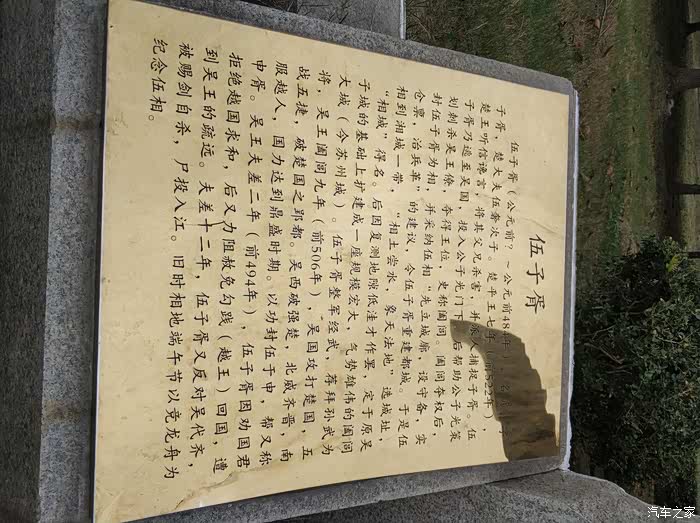 伍子胥
伍子胥（公元前?－公元前48
子胥，楚大夫伍奢次子。楚平王七年（前522年），
楚王听信谗言，将其父兄杀害，并派人捕捉子胥。伍
子胥乃逃至吴国，投入公子光门下，后帮助公子光策
划刺杀吴王僚，夺得王位，史称阖闾。阖闾夺权后，
封伍子胥为相，并采纳伍相“先立城廓，设守备，实
仓禀，治兵革”的建议，令伍子胥重建都城。于是伍
相到湘城一带，“相土尝水，象天法地，选城址，
“相城”得名。后因复测地隙低洼才作罢，定于原吴
子城的基础上扩建成一座规模宏大、气势雄伟的阖闾
大城（今苏州城）。伍子胥整军经武，荐拜孙武为
将，吴王阖闾九年（前506年），吴国攻打楚国，五
战五捷，破楚国之郢都。吴西破强楚，北威齐晋，南
服越人，国力达到鼎盛时期。以功封伍于申，帮又称
申胥。吴王夫差二年（前494年），伍子胥因劝国君
拒绝越国求和，后又力阻赦免勾践（越王）回国，遭
到吴王的疏远。夫差十二年，伍子胥又反对吴代齐，
被赐剑自杀，尸投入江。旧时相地端午节以竞龙舟为
纪念伍相。
汽车之家